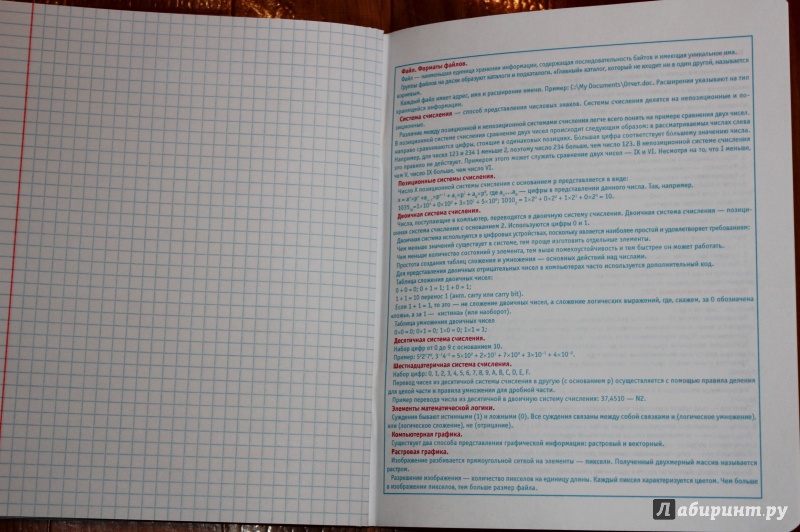 Файл. Форматы файлов.
Файл — наименьшая единица хранения информации, содержащая последовательность байтов и имеющая уникальное имя.
Группы файлов на диске образуют каталоги и подкаталоги. «Главный» каталог, который не входит ни в один другой, называется
корневым.
Каждый файл имеет адрес, имя и расширение имени. Пример: C:\My Documents\Отчет.doc. Расширения указывают на тип
хранящейся информации.
Система счисления — способ представления числовых знаков. Системы счисления делятся на непозиционные и по-
зиционные.
Различие между позиционной и непозиционной системами счисления легче всего понять на примере сравнения двух чисел.
В позиционной системе счисления сравнение двух чисел происходит следующим образом: в рассматриваемых числах слева
направо сравниваются цифры, стоящие в одинаковых позициях. Большая цифра соответствует большему значению числа.
Например, для чисел 123 и 234 1 меньше 2, поэтому число 234 больше, чем число 123. В непозиционной системе счисления
это правило не действует. Примером этого может служить сравнение двух чисел — IX и VI. Несмотря на то, что I меньше,
чем V, число IX больше, чем число VI.
Позиционные системы счисления.
Число X позиционной системы счисления с основанием p представляется в виде:
— цифры в представлении данного числа. Так, например,
Двоичная система счисления.
Числа, поступающие в компьютер, переводятся в двоичную систему счисления. Двоичная система счисления — позици-
онная система счисления с основанием 2. Используются цифры 0 и 1.
Двоичная система используется в цифровых устройствах, поскольку является наиболее простой и удовлетворяет требованиям:
Чем меньше значений существует в системе, тем проще изготовить отдельные элементы.
Чем меньше количество состояний у элемента, тем выше помехоустойчивость и тем быстрее он может работать.
Простота создания таблиц сложения и умножения — основных действий над числами.
Для представления двоичных отрицательных чисел в компьютерах часто используется дополнительный код.
Таблица сложения двоичных чисел:
0 + 0 = 0; 0 + 1 = 1; 1 + 0 = 1;
1 + 1 = 10 перенос 1 (англ. carry или carry bit).
Если 1 + 1 = 1, то это — не сложение двоичных чисел, а сложение логических выражений, где, скажем, за 0 обозначена
«ложь», а за 1 — «истина» (или наоборот).
Таблица умножения двоичных чисел
0×0 = 0; 0×1 = 0; 1×0 = 0; 1×1 = 1;
Десятичная система счисления.
Набор цифр от 0 до 9 с основанием 10.
Шестнадцатеричная система счисления.
Набор цифр: 0, 1, 2, 3, 4, 5, 6, 7, 8, 9, A, B, C, D, E, F.
Перевод чисел из десятичной системы счисления в другую (с основанием p) осуществляется с помощью правила деления
для целой части и правила умножения для дробной части.
Пример перевода числа из десятичной в двоичную систему счисления: 37,4510 — N2.
Элементы математической логики.
Суждения бывают истинными (1) и ложными (0). Все суждения связаны между собой связками и (логическое умножение),
или (логическое сложение), не (отрицание).
Компьютерная графика.
Существует два способа представления графической информации: растровый и векторный.
Растровая графика.
Изображение разбивается прямоугольной сеткой на элементы — пикселы. Полученный двухмерный массив называется
растром.
Разрешение изображения — количество пикселов на единицу длины. Каждый пиксел характеризуется цветом. Чем больше
в изображении пикселов, тем больше размер файла.
Лабиринт.ру